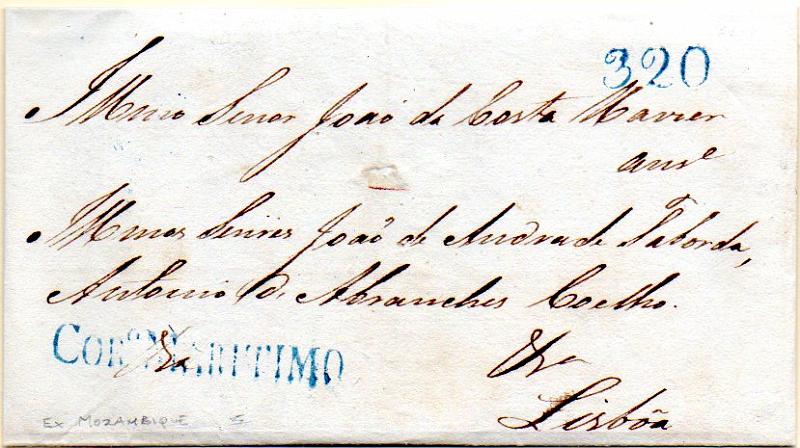 320
Illmo Senor João da Costa Xavier
ause
Illmos Senres João de Andrade Taborda,
Antonio de Abranches Coelho.
CORo MARITIMO
&a &a
Lisbôa
EX MOZAMBIQUE